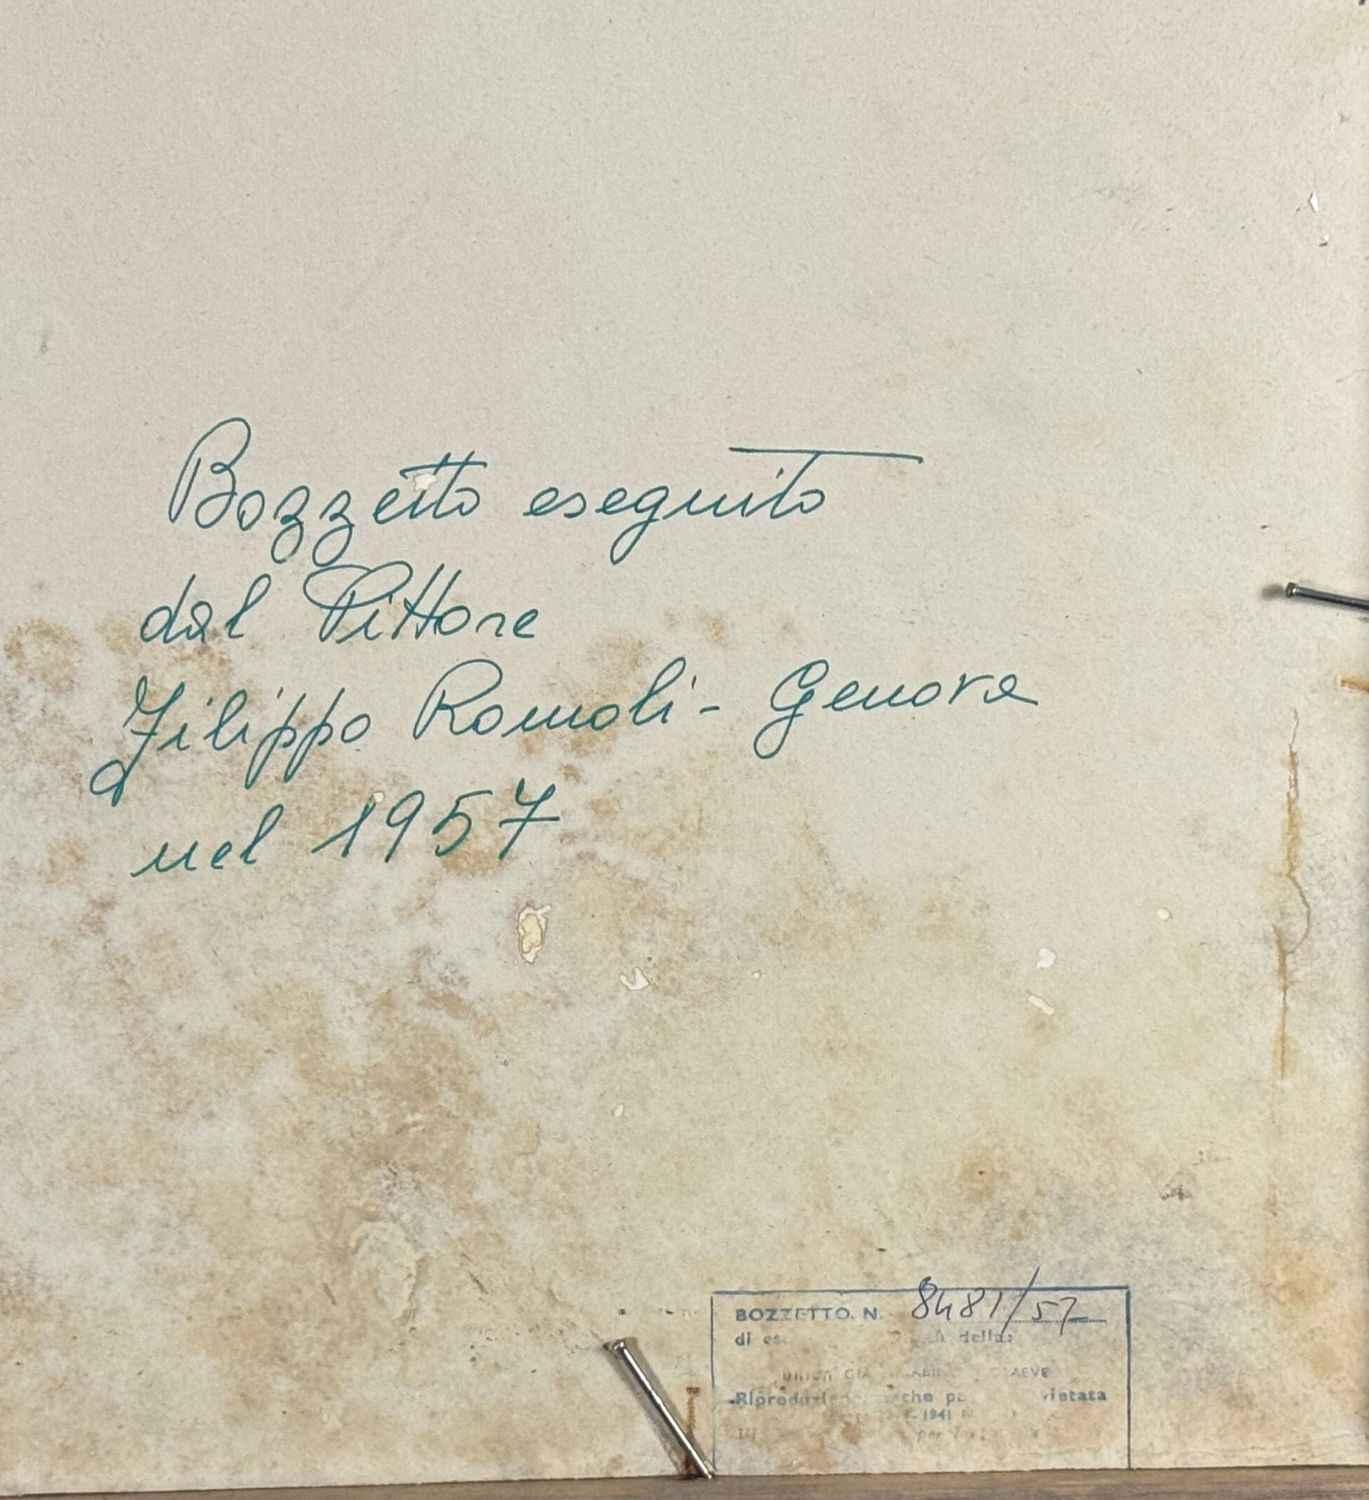 Bozzetto eseguito
dal Pittore
Filippo Romoli - Genova
nel 1957
BOZZETTO N. 8481/57
di della:
Riproduzione vietata
1941
per